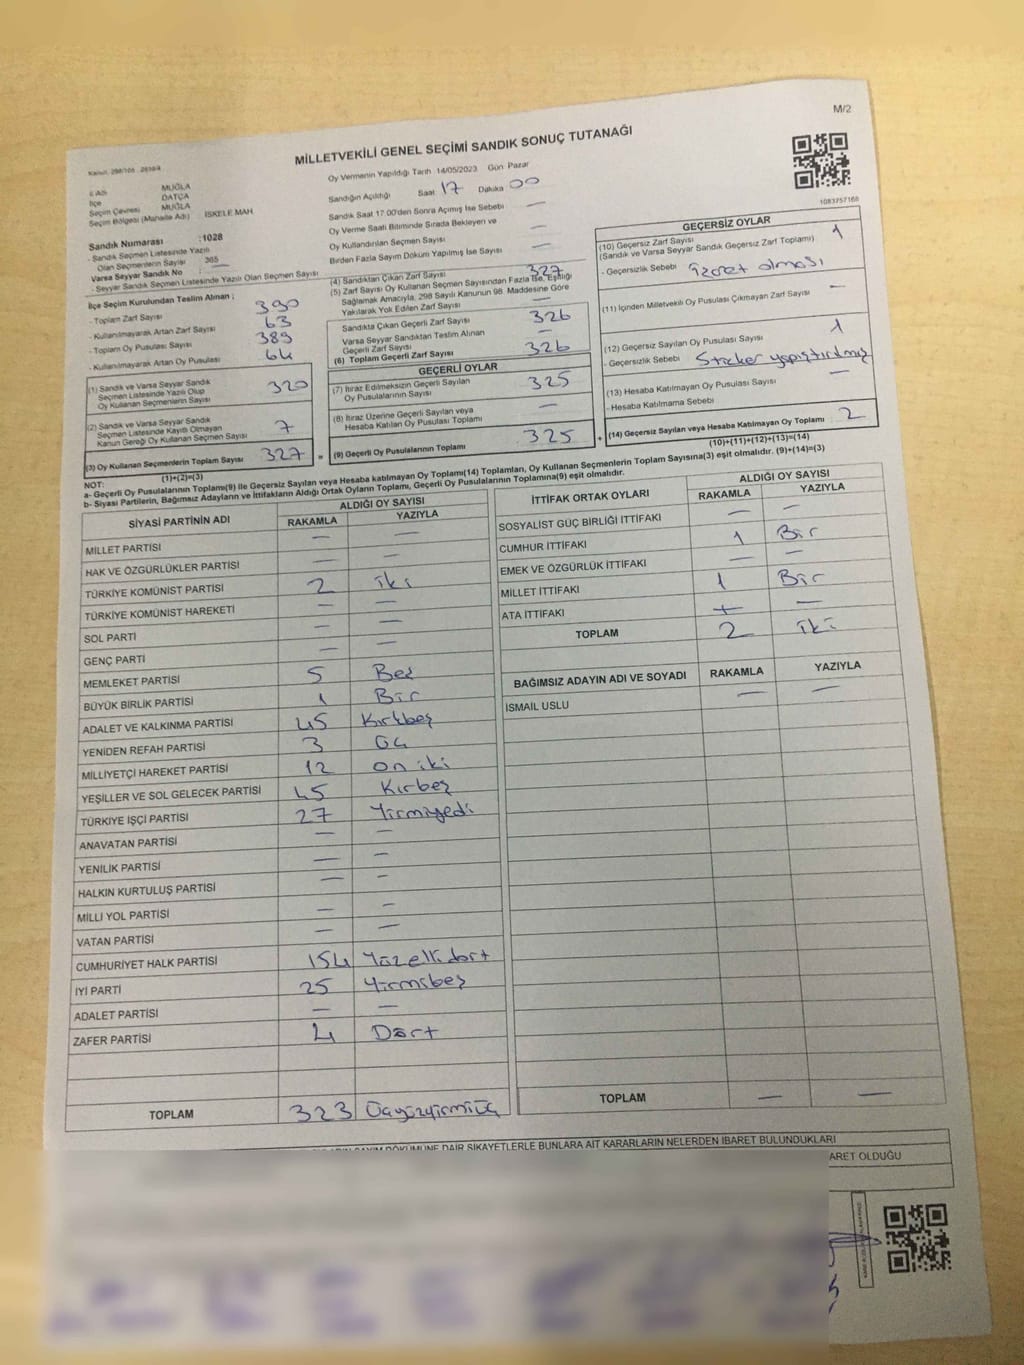 M/2
MİLLETVEKİLİ GENEL SEÇİMİ SANDIK SONUÇ TUTANAĞI
Oy Vermenin Yapıldığı Tarih 14/05/2023 Gün Pazar
İl Adı MUĞLA
İlçe DATÇA
Seçim Çevresi MUĞLA
Seçim Bölgesi (Mahalle Adı) İSKELE MAH
Sandık Numarası :1028
- Sandık Seçmen Listesinde Yazılı
Olan Seçmenlerin Sayısı 365
Varsa Seyyar Sandık No : —
- Seyyar Sandık Seçmen Listesinde Yazılı Olan Seçmen Sayısı
İlçe Seçim Kurulundan Teslim Alınan ;
- Toplam Zarf Sayısı 390
- Kullanılmayarak Artan Zarf Sayısı 63
- Toplam Oy Pusulası Sayısı 389
- Kullanılmayarak Artan Oy Pusulası 64
(1) Sandık ve Varsa Seyyar Sandık
Seçmen Listesinde Yazılı Olup
Oy Kullanan Seçmenlerin Sayısı 320
(2) Sandık ve Varsa Seyyar Sandık
Seçmen Listesinde Kayıtlı Olmayan
Kanun Gereği Oy Kullanan Seçmen Sayısı 7
(3) Oy Kullanan Seçmenlerin Toplam Sayısı 327
(1)+(2)=(3)
Sandığın Açıldığı Saat 17 Dakika 00
Sandık Saat 17:00'den Sonra Açılmış İse Sebebi —
Oy Verme Saati Bitiminde Sırada Bekleyen ve
Oy Kullandırılan Seçmen Sayısı —
Birden Fazla Sayım Dökümü Yapılmış İse Sayısı —
(4) Sandıktan Çıkan Zarf Sayısı 327
(5) Zarf Sayısı Oy Kullanan Seçmen Sayısından Fazla İse, Eşitliği
Sağlamak Amacıyla, 298 Sayılı Kanunun 98. Maddesine Göre
Yakılarak Yok Edilen Zarf Sayısı —
Sandıkta Çıkan Geçerli Zarf Sayısı 326
Varsa Seyyar Sandıktan Teslim Alınan
Geçerli Zarf Sayısı —
(6) Toplam Geçerli Zarf Sayısı 326
GEÇERLİ OYLAR
(7) İtiraz Edilmeksizin Geçerli Sayılan
Oy Pusulalarının Sayısı 325
(8) İtiraz Üzerine Geçerli Sayılan veya
Hesaba Katılan Oy Pusulası Toplamı —
(9) Geçerli Oy Pusulalarının Toplamı 325
1083757168
GEÇERSİZ OYLAR
(10) Geçersiz Zarf Sayısı
(Sandık ve Varsa Seyyar Sandık Geçersiz Zarf Toplamı) 1
- Geçersizlik Sebebi işaret olması
(11) İçinden Milletvekili Oy Pusulası Çıkmayan Zarf Sayısı —
(12) Geçersiz Sayılan Oy Pusulası Sayısı 1
- Geçersizlik Sebebi Sticker yapıştırılmış
(13) Hesaba Katılmayan Oy Pusulası Sayısı —
- Hesaba Katılmama Sebebi
(14) Geçersiz Sayılan veya Hesaba Katılmayan Oy Toplamı 2
(10)+(11)+(12)+(13)=(14)
NOT:
a- Geçerli Oy Pusulalarının Toplamı(9) İle Geçersiz Sayılan veya Hesaba katılmayan Oy Toplamı(14) Toplamları, Oy Kullanan Seçmenlerin Toplam Sayısına(3) eşit olmalıdır. (9)+(14)=(3)
b- Siyasi Partilerin, Bağımsız Adayların ve İttifakların Aldığı Ortak Oyların Toplamı, Geçerli Oy Pusulalarının Toplamına(9) eşit olmalıdır.
SİYASİ PARTİNİN ADI ALDIĞI OY SAYISI
RAKAMLA YAZIYLA
MİLLET PARTİSİ — —
HAK VE ÖZGÜRLÜKLER PARTİSİ — —
TÜRKİYE KOMÜNİST PARTİSİ 2 iki
TÜRKİYE KOMÜNİST HAREKETİ — —
SOL PARTİ — —
GENÇ PARTİ — —
MEMLEKET PARTİSİ 5 Beş
BÜYÜK BİRLİK PARTİSİ 1 Bir
ADALET VE KALKINMA PARTİSİ 45 Kırkbeş
YENİDEN REFAH PARTİSİ 3 Üç
MİLLİYETÇİ HAREKET PARTİSİ 12 on iki
YEŞİLLER VE SOL GELECEK PARTİSİ 45 Kırbeş
TÜRKİYE İŞÇİ PARTİSİ 27 Yirmiyedi
ANAVATAN PARTİSİ — —
YENİLİK PARTİSİ — —
HALKIN KURTULUŞ PARTİSİ — —
MİLLİ YOL PARTİSİ — —
VATAN PARTİSİ — —
CUMHURİYET HALK PARTİSİ 154 Yüzellidört
İYİ PARTİ 25 Yirmibeş
ADALET PARTİSİ — —
ZAFER PARTİSİ 4 Dört
TOPLAM 323 Üçyüzyirmiüç
İTTİFAK ORTAK OYLARI ALDIĞI OY SAYISI
RAKAMLA YAZIYLA
SOSYALİST GÜÇ BİRLİĞİ İTTİFAKI — —
CUMHUR İTTİFAKI 1 Bir
EMEK VE ÖZGÜRLÜK İTTİFAKI — —
MİLLET İTTİFAKI 1 Bir
ATA İTTİFAKI — —
TOPLAM 2 iki
BAĞIMSIZ ADAYIN ADI VE SOYADI RAKAMLA YAZIYLA
İSMAİL USLU — —
TOPLAM — —
DÖKÜMÜNE DAİR ŞİKAYETLERLE BUNLARA AİT KARARLARIN NELERDEN İBARET BULUNDUKLARI
ARET OLDUĞU